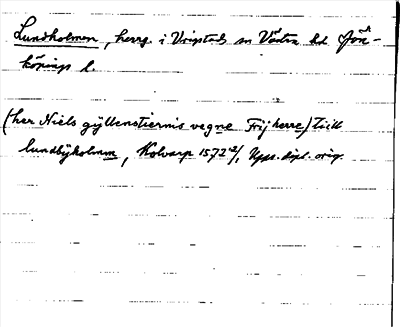 Lundholmen, herrg. i Vrigstads sn Västra hd Jön-
köpings l.
(her Niels gyllenstiernis vegne Frijherre) till
lundbyholmm, Holvarp 1572 /, Upps. dipl. orig.